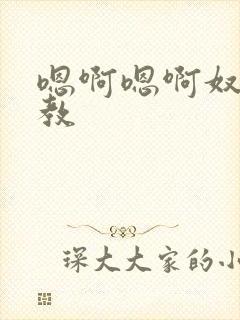 嗯啊嗯啊奴
教
琛大大家的小